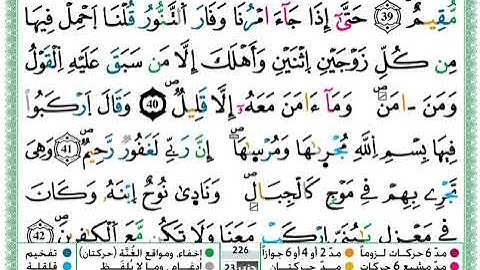 مُّقِيمٌ ٣٩ حَتَّىٰٓ إِذَا جَآءَ امْرُنَا وَفَارَ ٱلتَّنُّورُ قُلْنَا ٱحْمِلْ فِيهَا
مِن كُلٍّ زَوْجَيْنِ ٱثْنَيْنِ وَأَهْلَكَ إِلَّا مَن سَبَقَ عَلَيْهِ ٱلْقَوْلُ
وَمَنَ امَنَ وَمَآ ءَامَنَ مَعَهُۥٓ إِلَّا قَلِيلٌ ٤٠ وَقَالَ ٱرْكَبُوا۟
فِيهَا بِسْمِ ٱللَّهِ مُجْر۪ىٰهَا وَمُرْسَىٰهَا إِنَّ رَبِّى لَغَفُورٌ رَّحِيمٌ ٤١ وَهْىَ
تَجْرِى بِهِمْ فِى مَوْجٍ كَٱلْجِبَالِ وَنَادَىٰ نُوحٌ اِبْنَهُۥ وَكَانَ
فِى مَعْزِلٍ يَٰبُنَىِّ ٱرْكَب مَّعَنَا وَلَا تَكُن مَّعَ ٱلْكَٰفِرِينَ ٤٢
مدّ 6 حركات لزوماً مدّ 2 أو 4 أو 6 جوازاً 226 إخفاء، ومواقع الغُنَّة (حركتان) تفخيم
مدّ حركتان إدغام، وما لا يُلفَظ قلقلة